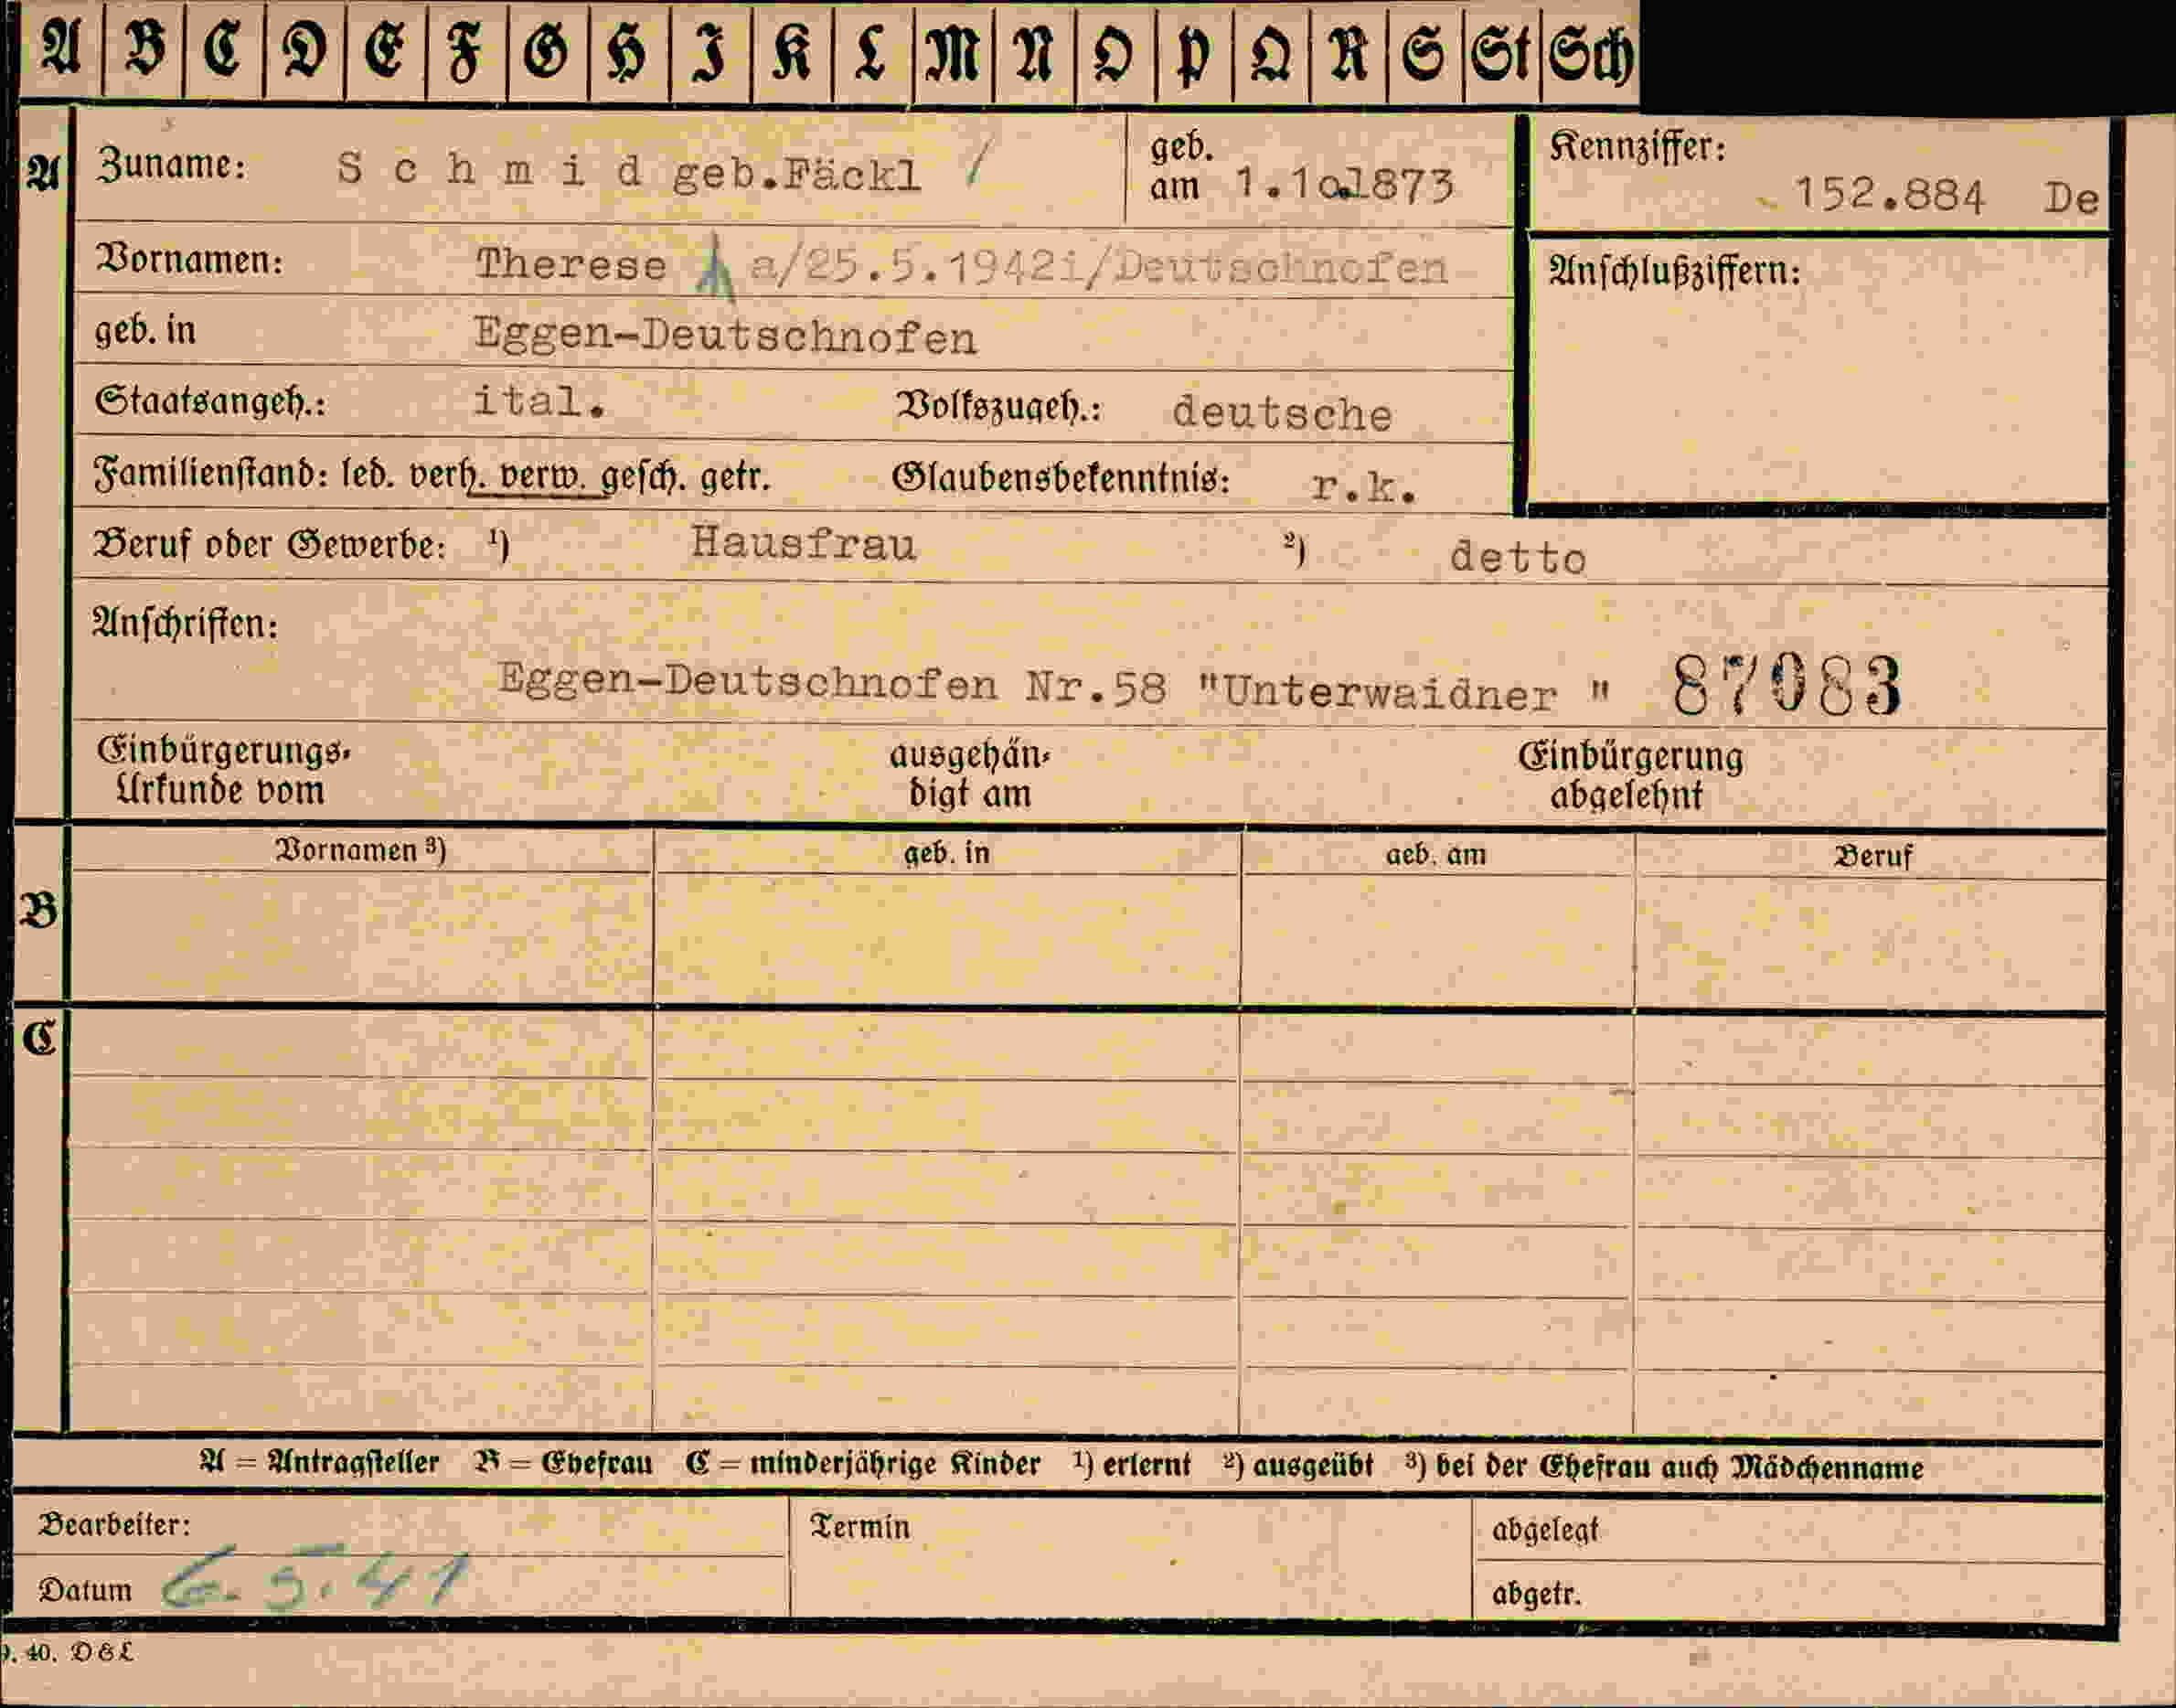 A B C D E F G H I K L M N O P Q R S St Sch
A Zuname: S c h m i d geb.Fäckl / geb. am 1.10.1873 Kennziffer: 152.884 De
Vornamen: Therese a/25.5.1942i/Deutschnofen Anschlußziffern:
geb. in Eggen-Deutschnofen
Staatsangeh.: ital. Volkszugeh.: deutsche
Familienstand: led. verh. verw. gesch. getr. Glaubensbekenntnis: r.k.
Beruf oder Gewerbe: ¹) Hausfrau ²) detto
Anschriften:
Eggen-Deutschnofen Nr.58 "Unterwaidner " 87083
Einbürgerungs- ausgehän- Einbürgerung
Urkunde vom digt am abgelehnt
Vornamen ³) geb. in geb. am Beruf
B
C
A = Antragsteller B = Ehefrau C = minderjährige Kinder ¹) erlernt ²) ausgeübt ³) bei der Ehefrau auch Mädchenname
Bearbeiter: Termin abgelegt
Datum 6.5.41 abgetr.
9. 40. D & L